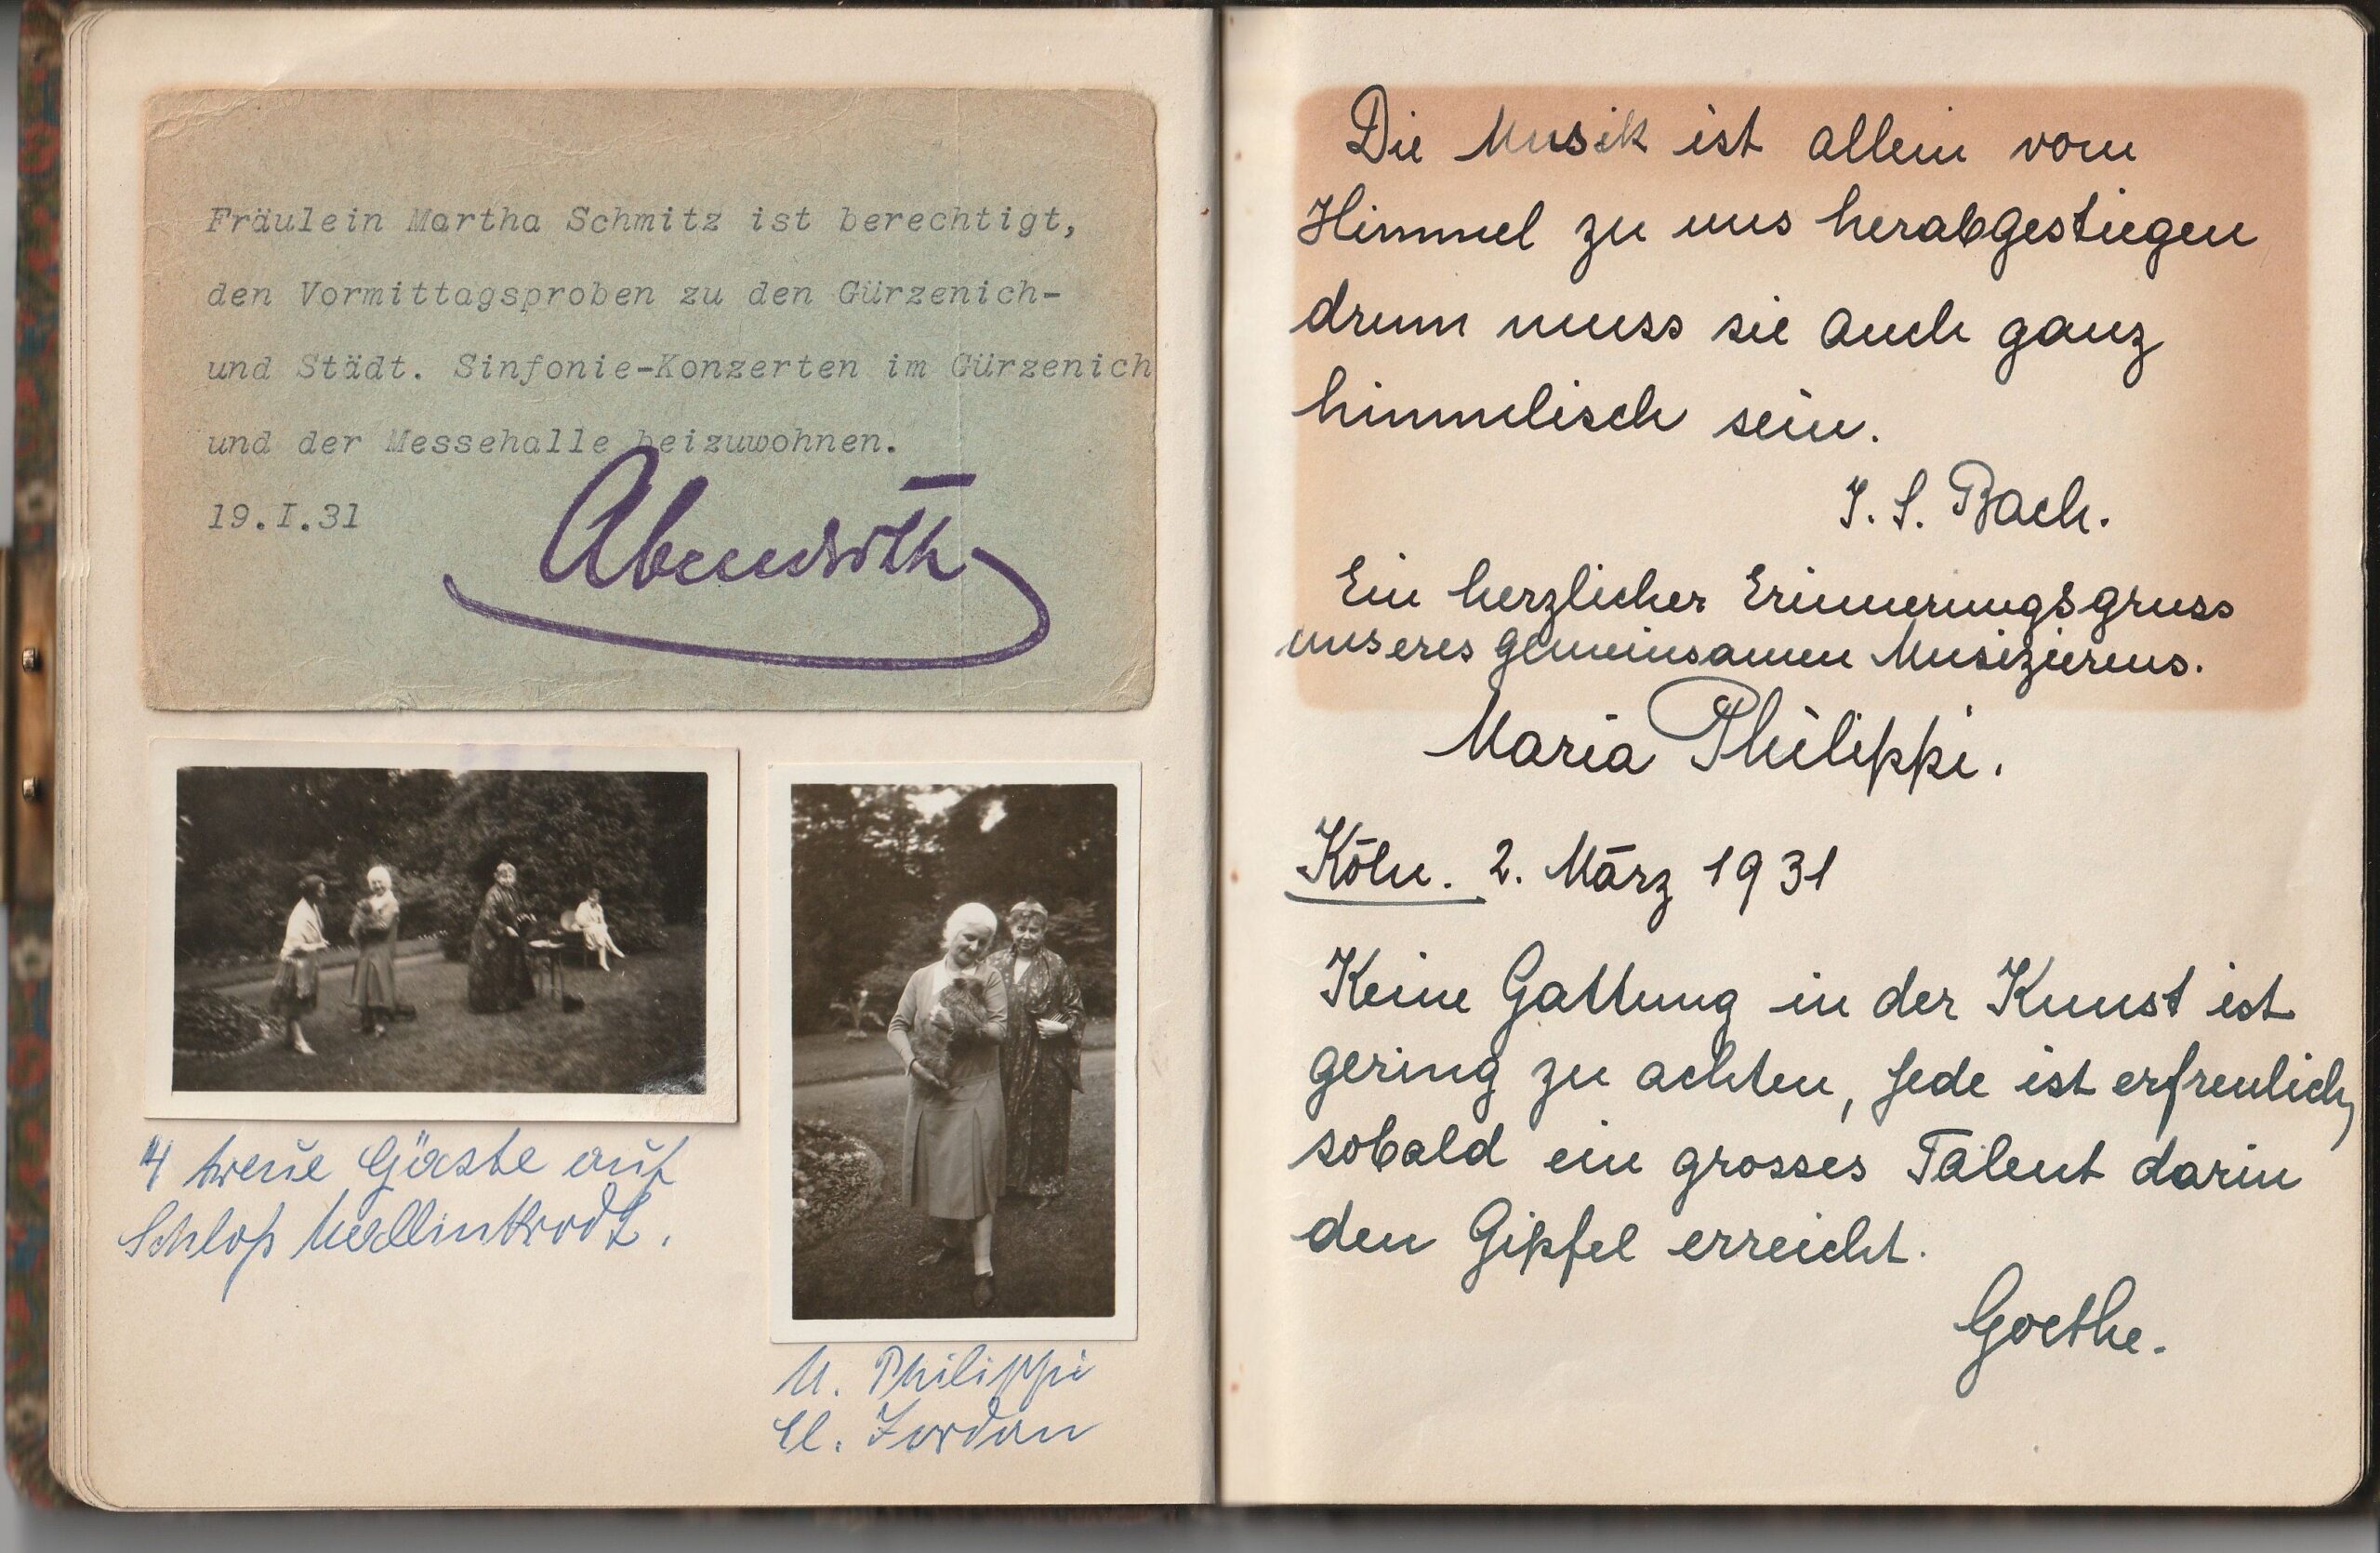 Fräulein Martha Schmitz ist berechtigt,
den Vormittagsproben zu den Gürzenich-
und Städt. Sinfonie-Konzerten im Gürzenich
und der Messehalle beizuwohnen.
19.I.31
Abendroth
4 treue Gäste auf
Schloß Mallinkrodt.
M. Philippi
El. Jordan
Die Musik ist allein vom
Himmel zu uns herabgestiegen
drum muss sie auch ganz
himmelisch sein.
J. S. Bach.
Ein herzlicher Erinnerungsgruss
unseres gemeinsamen Musizierens.
Maria Philippi.
Köln. 2. März 1931
Keine Gattung in der Kunst ist
gering zu achten, jede ist erfreulich,
sobald ein grosses Talent darin
den Gipfel erreicht.
Goethe.